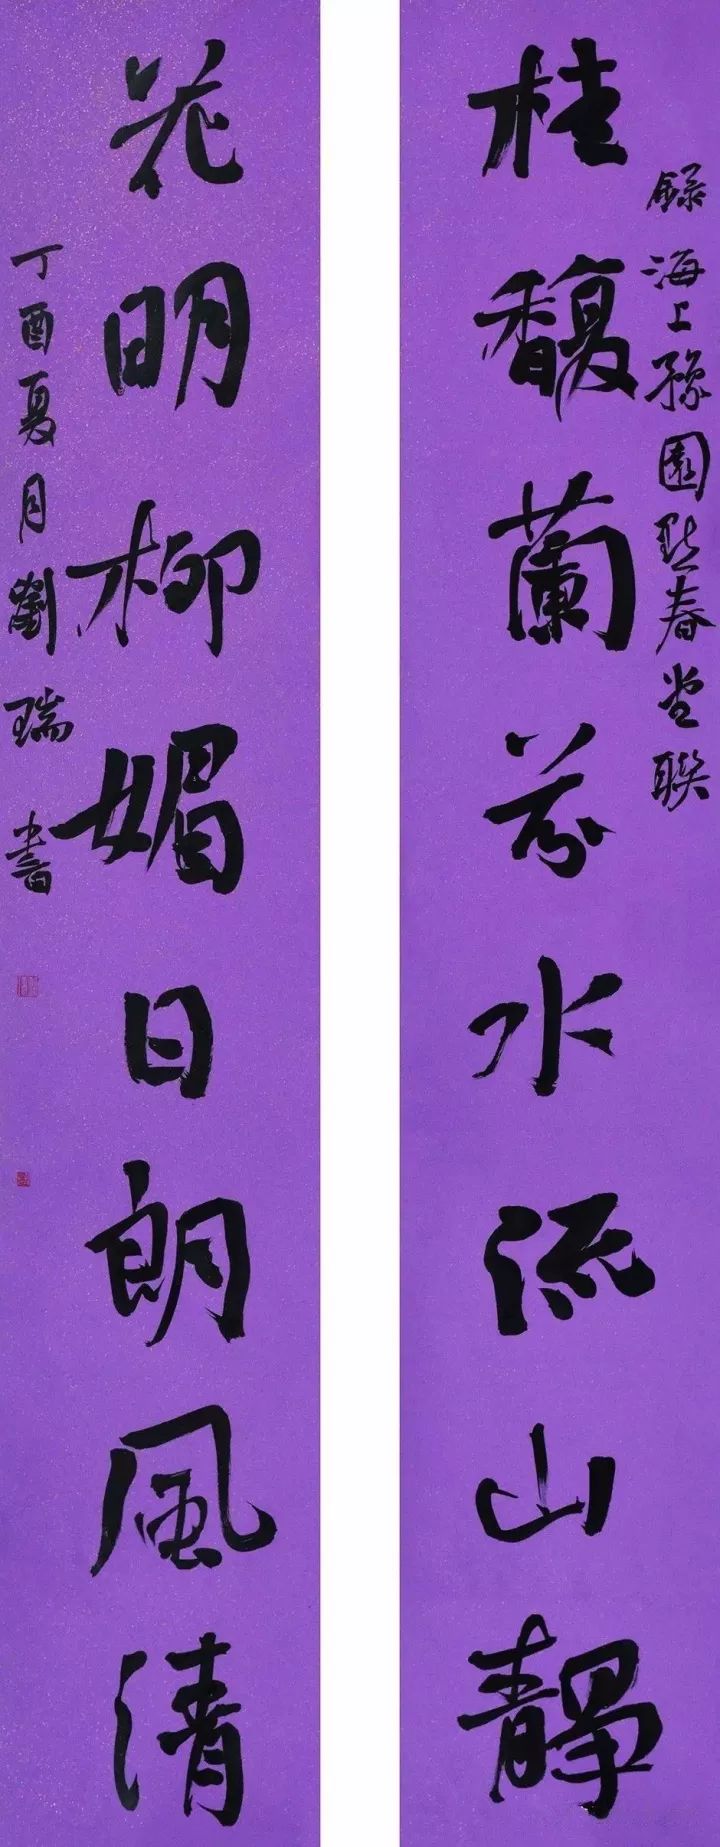 錄海上豫園點春堂聯
桂馥蘭芬水流山靜
花明柳媚日朗風清
丁酉夏月劉瑞書